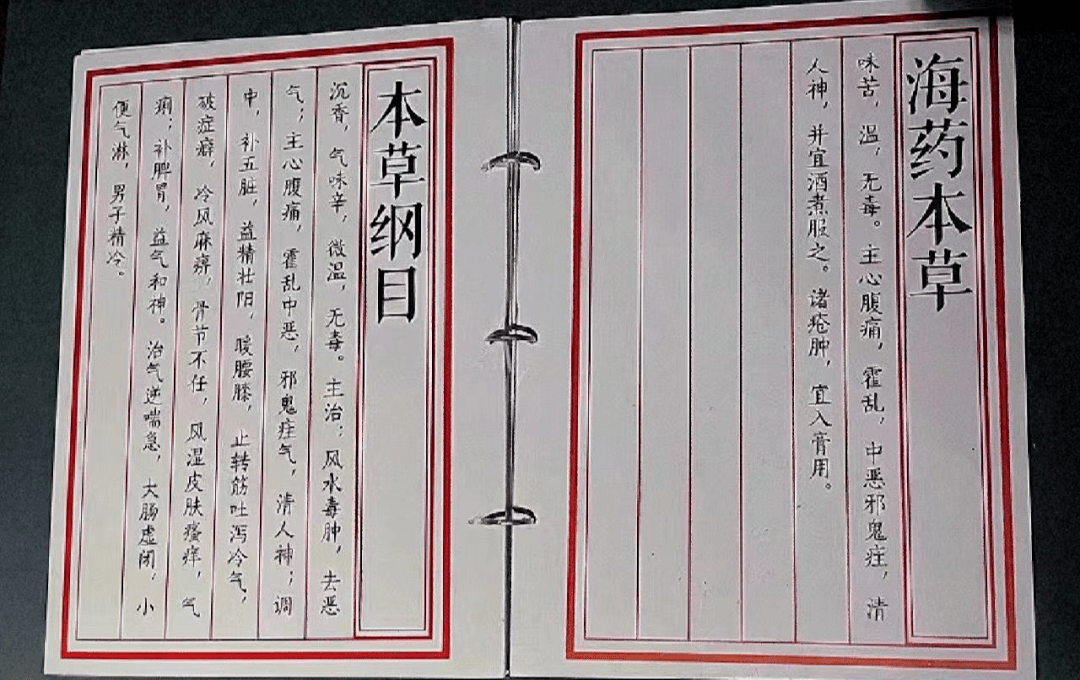 海药本草
味苦，温，无毒。主心腹痛，霍乱，中恶邪鬼疰，清
人神，并宜酒煮服之。诸疮肿，宜入膏用。
本草纲目
沉香，气味辛，微温，无毒。主治：风水毒肿，去恶
气；主心腹痛，霍乱中恶，邪鬼疰气，清人神；调
中，补五脏，益精壮阳，暖腰膝，止转筋吐泻冷气，
破症癖，冷风麻痹，骨节不任，风湿皮肤瘙痒，气
痢；补脾胃，益气和神。治气逆喘急，大肠虚闭，小
便气淋，男子精冷。